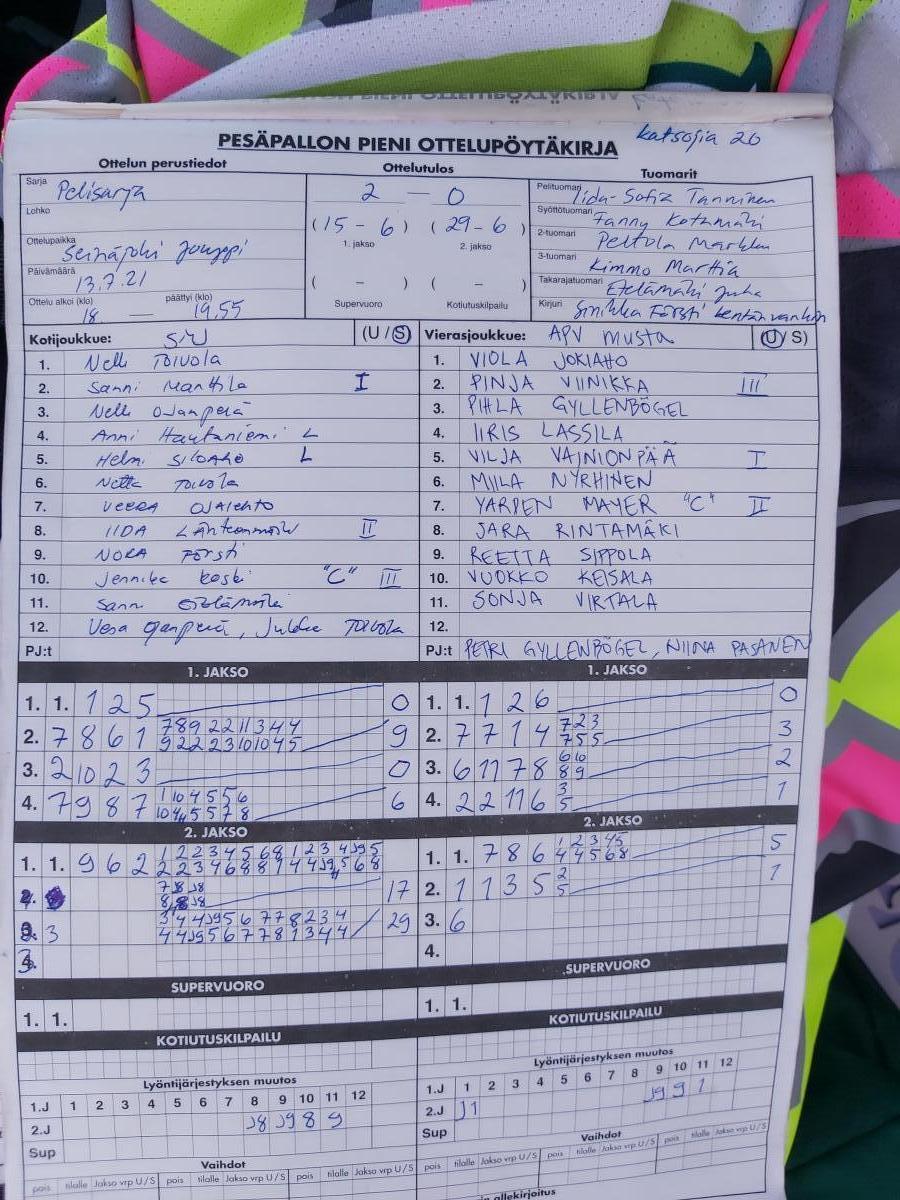 katsojia 20
PESÄPALLON PIENI OTTELUPÖYTÄKIRJA
Ottelun perustiedot
Ottelutulos
Tuomarit
Sarja Pelisarja
Lohko
Ottelupaikka Seinäjoki Jouppi
Päivämäärä 13.7.21
Ottelu alkoi (klo) 18 — päättyi (klo) 19.55
2 — 0
(15 - 6) (29 - 6)
1. jakso 2. jakso
( - ) ( - )
Supervuoro Kotiutuskilpailu
Pelituomari Iida-Sofia Tanninen
Syöttötuomari Fanny Kotamäki
2-tuomari Peltola Markku
3-tuomari Kimmo Marttia
Takarajatuomari Etelämäki Juha
Kirjuri Sinikka Försti kentänvanhin
Kotijoukkue: SJJ (U / S)
1. Nelli Toivola
2. Sanni Manttila I
3. Nelli Ojanperä
4. Anni Hautaniemi L
5. Helmi SILOAHO L
6. Netta Toivola
7. VEERA OJALEHTO
8. IIDA Lähteenmäki II
9. NORA Försti
10. Jennika Koski "C" III
11. Sanni Etelämäki
12. Vesa Ojanperä, Jukka Toivola
PJ:t
Vierasjoukkue: APV musta (U / S)
1. VIOLA JOKIAHO
2. PINJA VIINIKKA III
3. PIHLA GYLLENBÖGEL
4. IIRIS LASSILA
5. VILJA VAINIONPÄÄ I
6. MIILA NYRHINEN
7. YARDEN MAYER "C" II
8. JARA RINTAMÄKI
9. REETTA SIPPOLA
10. VUOKKO KEISALA
11. SONJA VIRTALA
12.
PJ:t PETRI GYLLENBÖGEL, NIINA PASANEN
1. JAKSO
1. 1. 1 2 5 0
2. 7 8 6 1 7 8 9 2 2 11 3 4 4 9
9 2 2 2 3 10 10 4 5
3. 2 10 2 3 0
4. 7 9 8 7 1 10 4 5 5 6 6
1. JAKSO
1. 1. 1 2 6 0
2. 7 7 1 4 7 2 3 3
7 5 5
3. 6 11 7 8 6 10 2
8 9
4. 2 2 11 6 3 1
5
2. JAKSO
1. 1. 9 6 2 1 2 2 3 4 5 6 8 1 2 3 4 J9 5
7 8 J8 17
3 3 4 4 J9 5 6 7 7 8 2 3 4 29
4 4 J9 5 6 7 7 8 1 3 4 4
2. JAKSO
1. 1. 7 8 6 1 2 3 4 5 5
4 4 5 6 8
2. 1 1 3 5 2 1
5
3. 6
4.
SUPERVUORO
1. 1.
SUPERVUORO
1. 1.
KOTIUTUSKILPAILU
KOTIUTUSKILPAILU
Lyöntijärjestyksen muutos
1.J 1 2 3 4 5 6 7 8 9 10 11 12
2.J J8 J9 8 9
Sup
Vaihdot
pois tilalle Jakso vrp U/S pois tilalle Jakso vrp U/S
Lyöntijärjestyksen muutos
1.J 1 2 3 4 5 6 7 8 9 10 11 12
2.J J1 J9 9 1
Sup
Vaihdot
pois tilalle Jakso vrp U/S pois tilalle Jakso vrp U/S
allekirjoitus